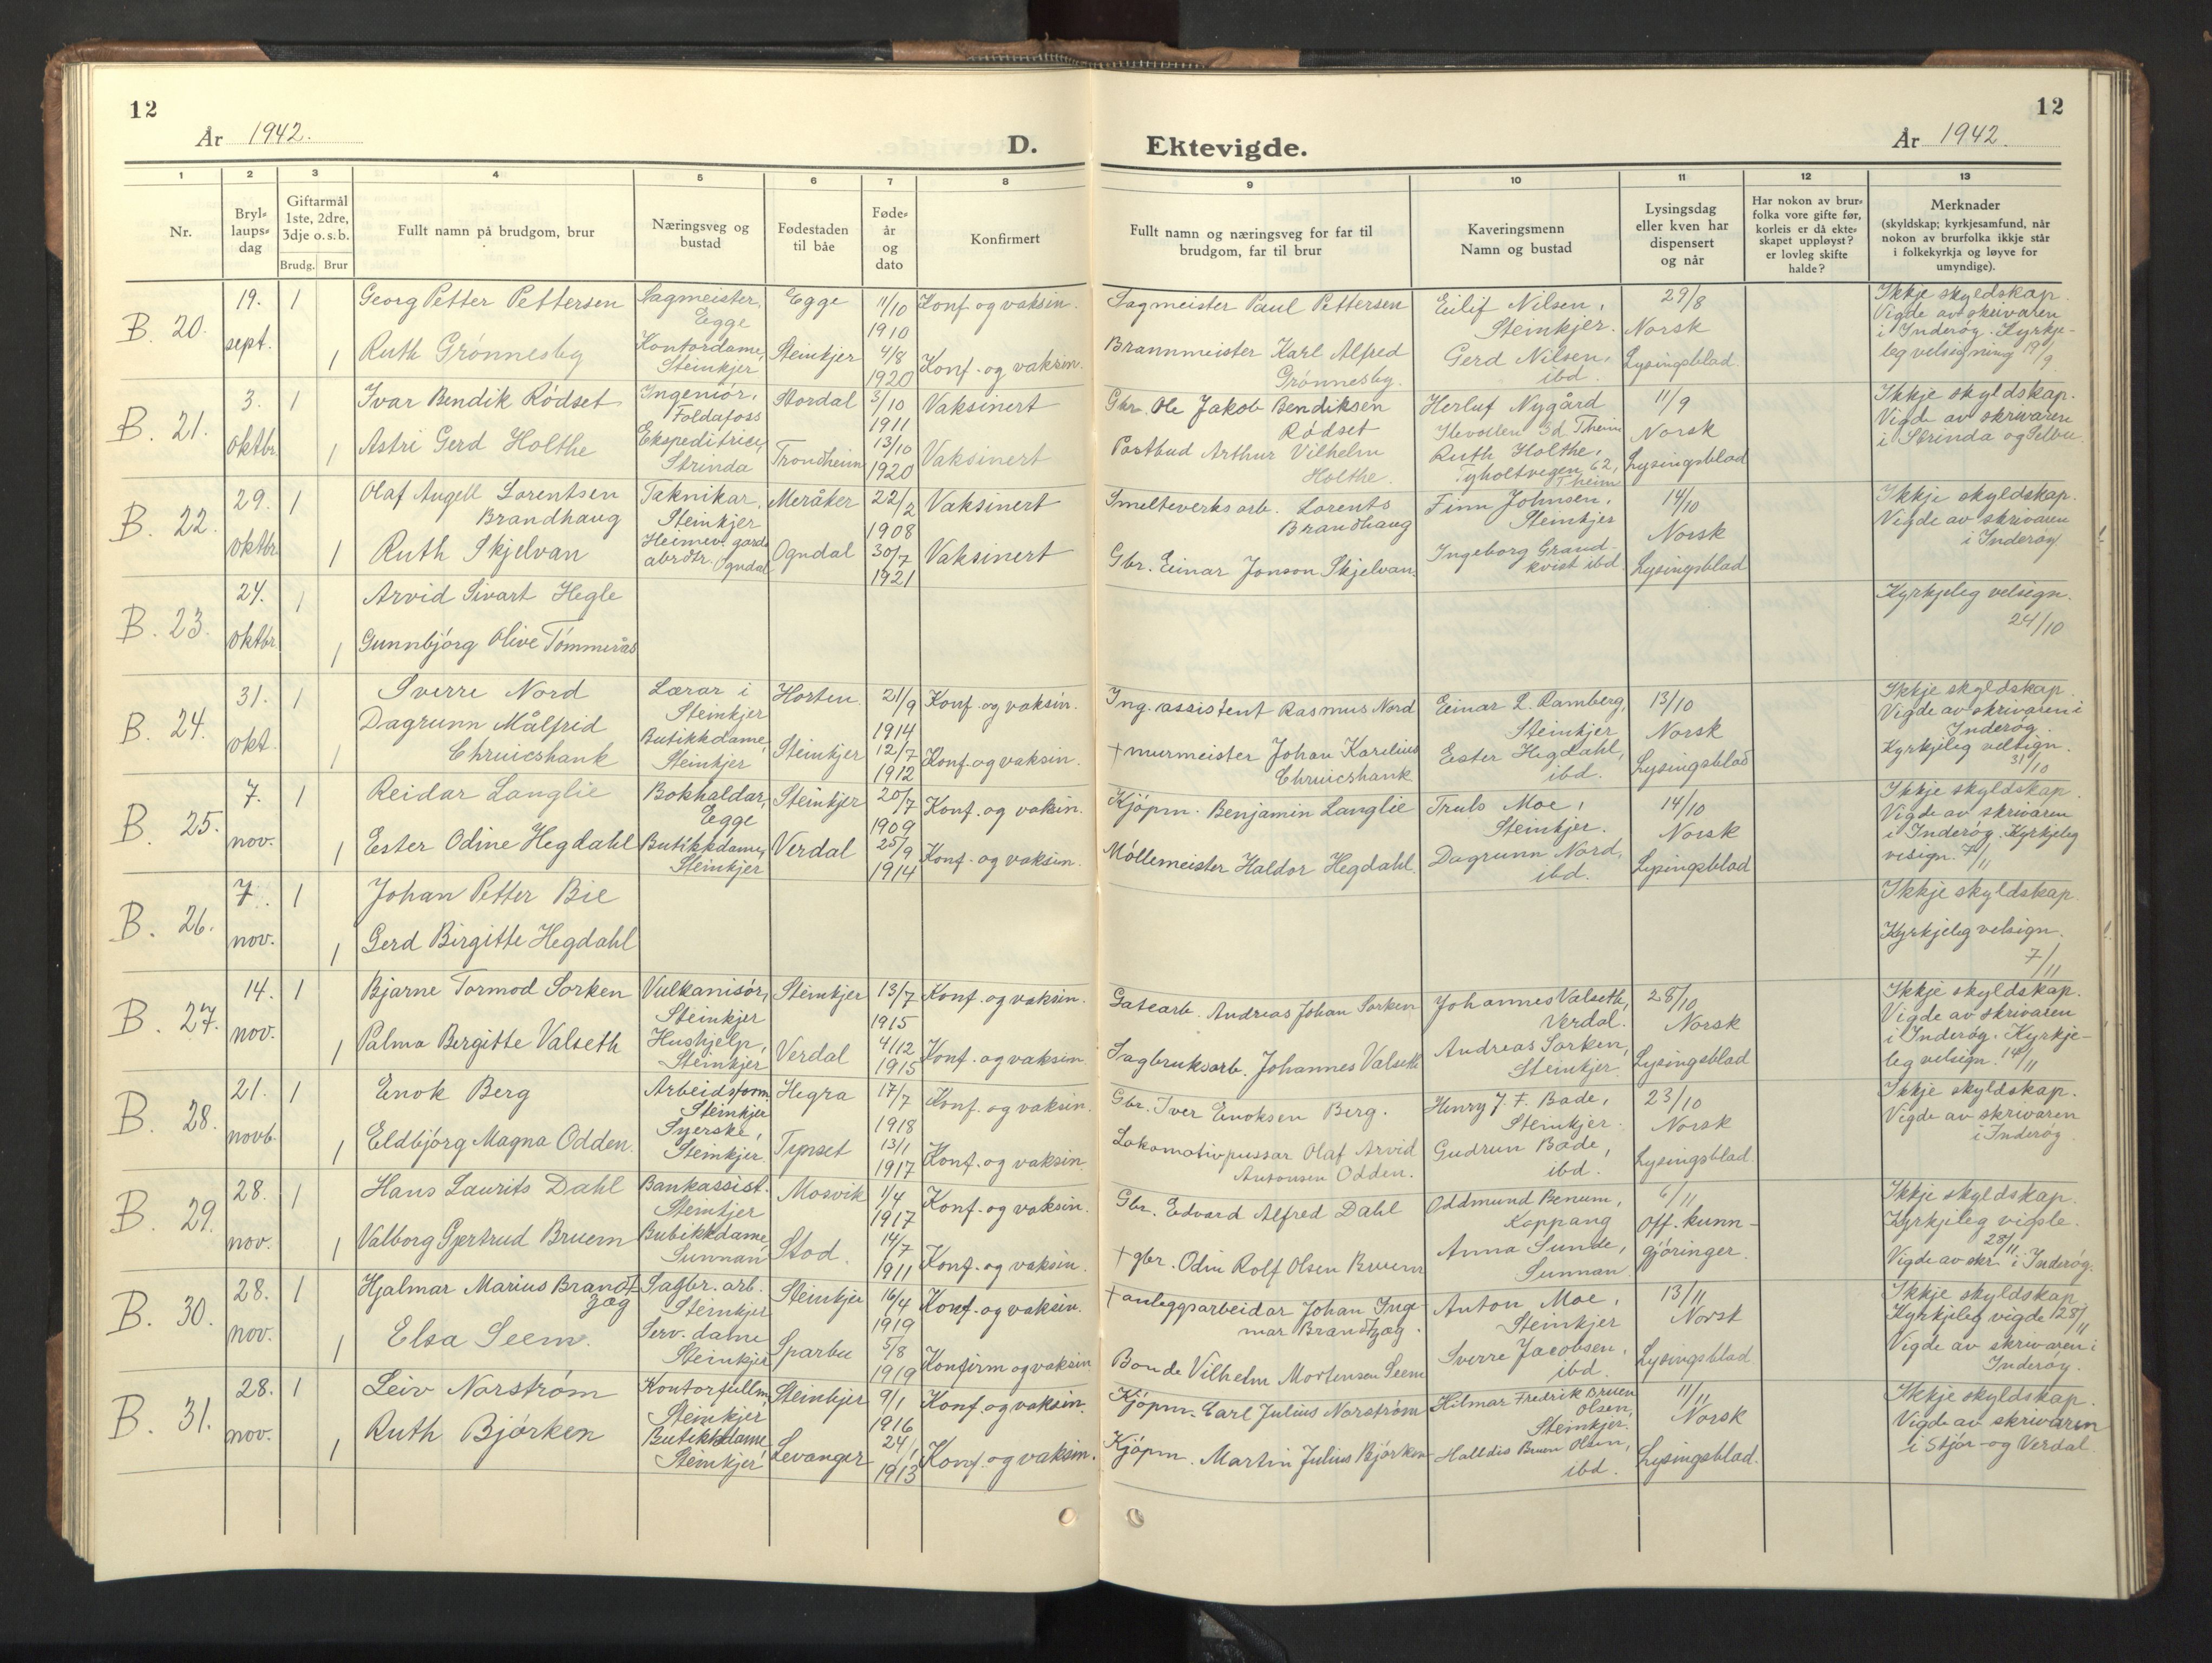 12
År 1942.
D.
1 2 3 4 5 6 7 8
Nr.
Bryl-
laups-
dag
Giftarmål
1ste, 2dre,
3dje o. s. b.
Brudg. Brur
Fullt namn på brudgom, brur
Næringsveg og
bustad
Fødestaden
til båe
Føde-
år
og
dato
Konfirmert
B. 20.
19.
sept.
1
Georg Petter Pettersen
Sagmeister,
Egge
Egge
11/10
1910
Konf. og vaksin.
1
Ruth Grønnesby
Kontordame,
Steinkjer
Steinkjer
4/8
1920
Konf. og vaksin.
B. 21.
3.
oktbr
1
Ivar Bendik Rødset
Ingeniør,
Foldafoss
Stordal
3/10
1911
Vaksinert
1
Astri Gerd Holthe
Ekspeditrise,
Strinda
Trondheim
13/10
1920
Vaksinert
B. 22.
29.
oktbr
1
Olaf Angell Lorentsen
Brandhaug
Teknikar,
Steinkjer
Meråker
22/2
1908
Vaksinert
1
Ruth Skjelvan
Heimev. gards
abrdtr. Ogndal
Ogndal
30/7
1921
Vaksinert
B. 23.
24.
oktbr
1
Arvid Sivart Hegle
1
Gunnbjørg Olive Tømmerås
B. 24.
31.
okt.
1
Sverre Nord
Lærar i
Steinkjer
Horten
21/9
1914
Konf. og vaksin.
1
Dagrunn Målfrid
Chruicshank
Butikkdame,
Steinkjer
Steinkjer
12/7
1912
Konf. og vaksin.
B. 25.
7.
nov.
1
Reidar Langlie
Bokhaldar,
Egge
Steinkjer
20/7
1909
Konf. og vaksin.
1
Ester Odine Hegdahl
Butikkdame,
Steinkjer
Verdal
25/9
1914
Konf. og vaksin.
B. 26.
7.
nov.
1
Johan Petter Bie
1
Gerd Birgitte Hegdahl
B. 27.
14.
nov.
1
Bjarne Tormod Sorken
Vulkanisør,
Steinkjer
Steinkjer
13/7
1915
Konf. og vaksin.
1
Palma Bergitte Valseth
Hushjelp,
Steinkjer
Verdal
4/12
1915
Konf. og vaksin.
B. 28.
21.
novb.
1
Enok Berg
Arbeidsform.
Steinkjer
Hegra
17/7
1918
Konf. og vaksin.
1
Eldbjørg Magna Odden.
Syerske,
Steinkjer
Tynset
13/1
1917
Konf. og vaksin.
B. 29.
28.
nov.
1
Hans Laurits Dahl
Bankassist.
Steinkjer
Mosvik
1/4
1917
Konf. og vaksin.
1
Valborg Gjertrud Bruem
Butikkdame
Sunnan
Stod.
14/7
1911
Konf. og vaksin.
B. 30.
28.
nov.
1
Hjalmar Marius Brandt
zæg
Sagbr. arb.
Steinkjer
Steinkjer
16/4
1919
Konf. og vaksin.
1
Elsa Seem.
Serv. dame
Steinkjer
Sparbu
5/8
1919
Konfirm og vaksin
B. 31.
28.
nov.
1
Leiv Norstrøm
Kontorfullm.
Steinkjer
Steinkjer
9/1
1916
Konf. og vaksin.
1
Ruth Bjørken
Butikkdame
Steinkjer
Levanger
24/1
1913
Konf. og vaksin.
12
Ektevigde.
År 1942.
9 10 11 12 13
Fullt namn og næringsveg for far til
brudgom, far til brur
Kaveringsmenn
Namn og bustad
Lysingsdag
eller kven har
dispensert
og når
Har nokon av brur-
folka vore gifte før,
korleis er då ekte-
skapet uppløyst?
er lovleg skifte
halde?
Merknader
(skyldskap; kyrkjesamfund, når
nokon av brurfolka ikkje står
i folkekyrkja og løyve for
umyndige).
Sagmeister Paul Pettersen
Brannmeister Karl Alfred
Grønnesby.
Eilif Nilsen,
Steinkjer.
Gerd Nilsen,
ibd.
29/8
Norsk
Lysingsblad.
Ikkje skyldskap.
Vigde av skrivaren
i Inderøy. Kyrkje-
leg velsigning 19/9
Gbr. Ole Jakob Bendiksen
Rødset
Postbud Arthur Vilhelm
Holthe.
Herluf Nygård
Ilevollen 3d Theim
Ruth Holthe,
Tyholtvegen 62,
Theim
11/9
Norsk
Lysingsblad
Ikkje skyldskap.
Vigde av skrivaren
i Strinda og Selbu.
Smelteverksarb. Lorents
Brandhaug
Gbr. Einar Jonson Skjelvan.
Finn Johnsen,
Steinkjer
Ingeborg Grand-
kvist ibd.
14/10
Norsk
Lysingsblad
Ikkje skyldskap.
Vigde av skrivaren
i Inderøy
Kyrkjeleg velsign.
24/10
Ing. assistent Rasmus Nord
+ murmeister Johan Karelius
Chruicshank
Einar L. Ramberg,
Steinkjer
Ester Hegdahl,
ibd.
13/10
Norsk
Lysingsblad
Ikkje skyldskap.
Vigde av skrivaren i
Inderøy.
Kyrkjeleg velsign.
31/10
Kjøpm. Benjamin Langlie
Møllemeister Haldor Hegdahl.
Truls Moe,
Steinkjer.
Dagrunn Nord,
ibd.
14/10
Norsk
Lysingsblad
Ikkje skyldskap.
Vigde av skrivaren
i Inderøy. Kyrkjeleg
velsign. 7/11
Ikkje skyldskap.
Kyrkjeleg velsign.
7/11
Gatearb. Andreas Johan Sorken
Sagbruksarb. Johannes Valseth
Johannes Valseth,
Verdal.
Andreas Sorken,
Steinkjer
28/10
Norsk
Lysingsblad
Ikkje skyldskap.
Vigde av skrivaren
i Inderøy. Kyrkje-
leg velsign. 14/11
Gbr. Iver Enoksen Berg.
Lokomotivpussar Olaf Arvid
Antonsen Odden.
Henry J. F. Bade,
Steinkjer.
Gudrun Bade,
ibd.
23/10
Norsk
Lysingsblad.
Ikkje skyldskap.
Vigde av skrivaren
i Inderøy.
Gbr. Edvard Alfred Dahl
+ gbr. Odin Rolf Olsen Bruem
Oddmund Benum,
Koppang
Anna Sunde,
Sunnan
6/11
Off. kunn-
gjøringer.
Ikkje skyldskap.
Kyrkjeleg vigsle.
28/11
Vigde av skr. i Inderøy.
+ anleggsarbeidar Johan Ing-
mar Brandtzæg.
Bonde Vilhelm Mortensen Seem
Anton Moe,
Steinkjer
Sverre Jacobsen,
ibd.
13/11
Norsk
Lysingsblad
Ikkje skyldskap
Kyrkjeleg vigde 28/11
Vigde av skrivaren i
Inderøy.
Kjøpm. Carl Julius Norstrøm
Kjøpm. Martin Julius Bjørken
Hilmar Fredrik Bruen
Olsen,
Steinkjer.
Halldis Bruen Olsen,
ibd.
11/11
Norsk
Lysingsblad.
Ikkje skyldskap.
Vigde av skrivaren
i Stjør- og Verdal.